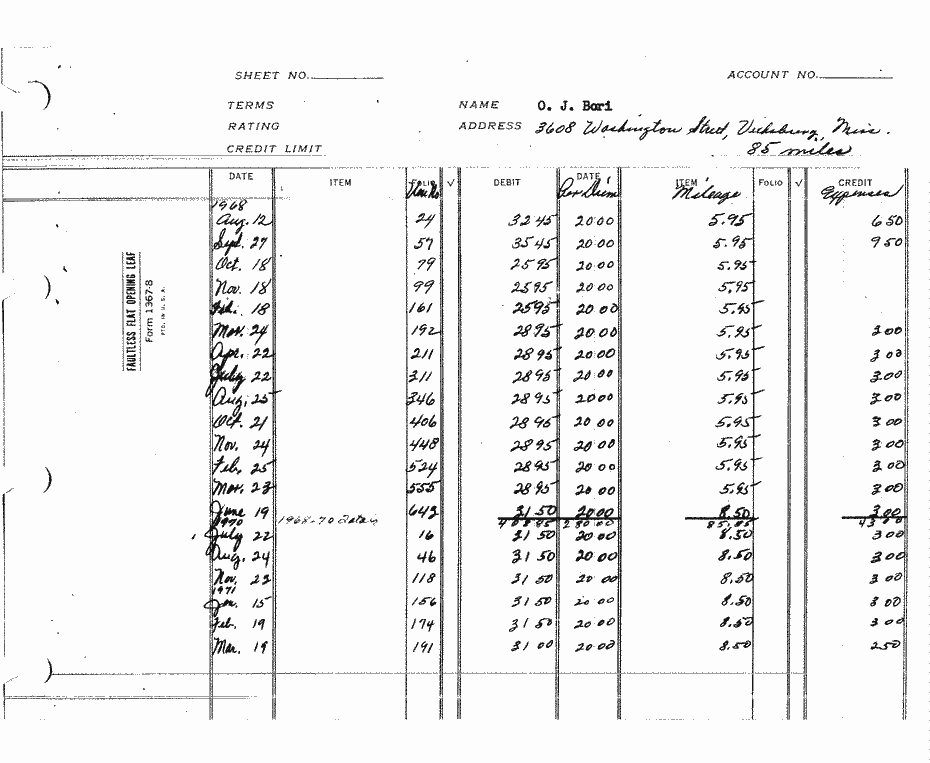 SHEET NO. ACCOUNT NO.
TERMS NAME O. J. Bori
RATING ADDRESS 3608 Washington Street, Vicksburg, Miss.
CREDIT LIMIT 85 miles
DATE ITEM FOLIO √ DEBIT DATE ITEM FOLIO √ CREDIT
Vou. No Per Diem Mileage Expenses
1968
Aug. 12 24 32 45 20 00 5.95 6 50
Sept. 27 57 35 45 20 00 5.95 9 50
Oct. 18 79 25 95 20 00 5.95
Nov. 18 99 25 95 20 00 5.95
Feb. 18 161 25 95 20 00 5.95
Mar. 24 192 28 95 20 00 5.95 3 00
Apr. 22 211 28 95 20 00 5.95 3 00
July 22 311 28 95 20 00 5.95 3 00
Aug. 25 346 28 95 20 00 5.95 3 00
Oct. 21 406 28 95 20 00 5.95 3 00
Nov. 24 448 28 95 20 00 5.95 3 00
Feb. 25 524 28 95 20 00 5.95 3 00
Mar. 23 555 28 95 20 00 5.95 3 00
June 19 642 31 50 20 00 8.50 3 00
1970 1968-70 280 00 85.85
July 22 16 31 50 20 00 8.50 3 00
Aug. 24 46 31 50 20 00 8.50 3 00
Nov. 23 118 31 50 20 00 8.50 3 00
1971
Jan. 15 156 31 50 20 00 8.50 3 00
Feb. 19 174 31 50 20 00 8.50 3 00
Mar. 19 191 31 00 20 00 8.50 2 50
FAULTLESS FLAT OPENING LEAF
Form 1367-8
PTD. IN U.S.A.